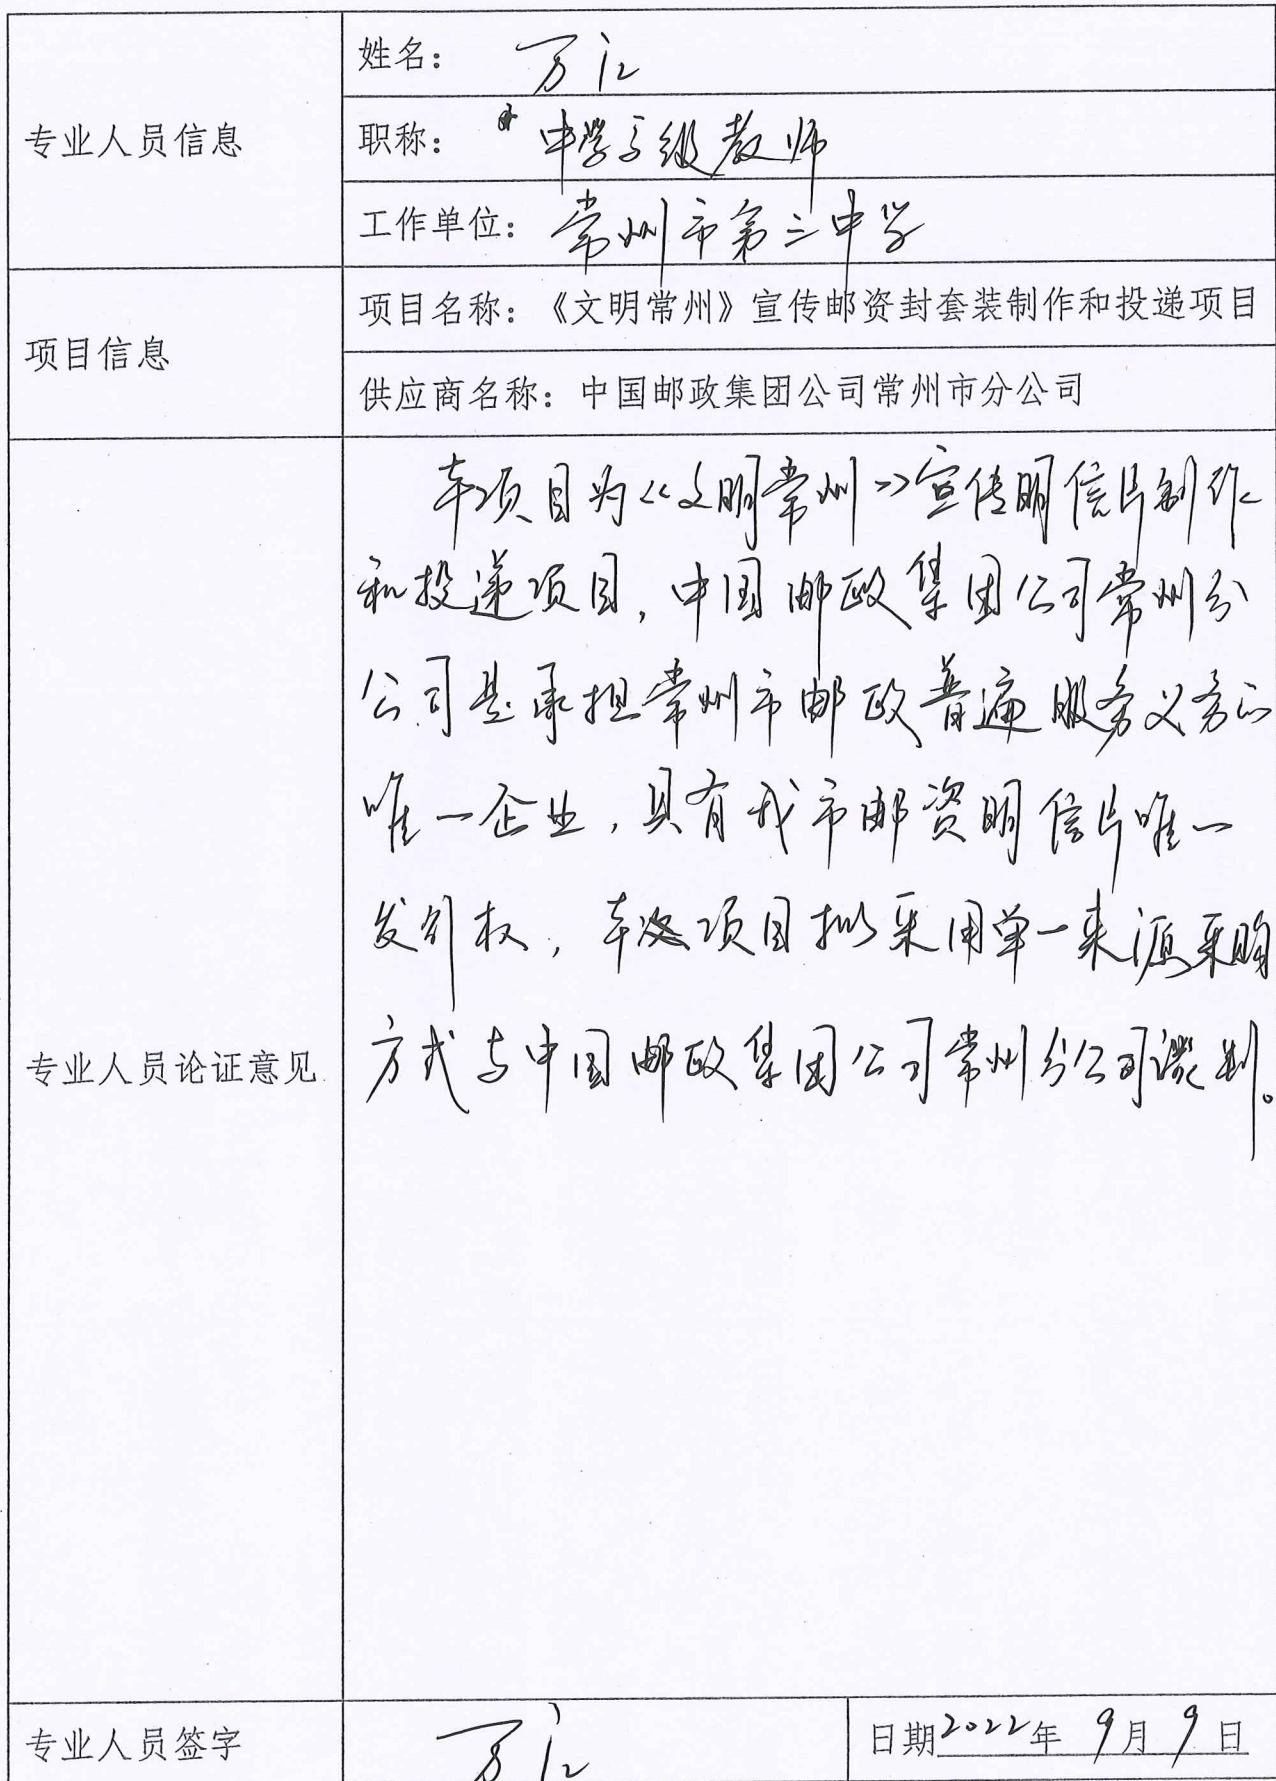 专业人员信息
姓名：万江
职称：中学高级教师
工作单位：常州市第三中学
项目信息
项目名称：《文明常州》宣传邮资封套装制作和投递项目
供应商名称：中国邮政集团公司常州市分公司
专业人员论证意见
本项目为《文明常州》宣传明信片制作
和投递项目，中国邮政集团公司常州分
公司是承担常州市邮政普遍服务义务的
唯一企业，具有我市邮资明信片唯一
发行权，本次项目拟采用单一来源采购
方式与中国邮政集团公司常州分公司谈判。
专业人员签字
万江
日期2022年9月9日